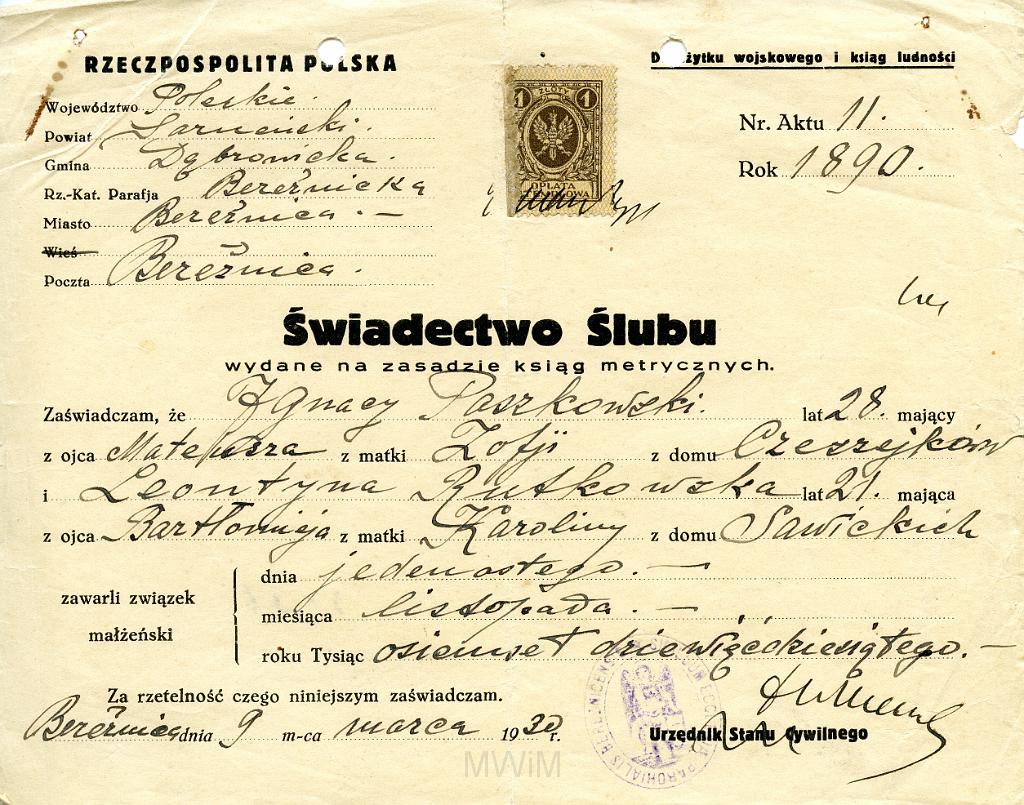 RZECZPOSPOLITA POLSKA
Województwo Poleskie.
Powiat Sarneński.
Gmina Dąbrowicka.
Rz.-Kat. Parafja Bereźnicka
Miasto Bereźnica. —
Wieś
Poczta Bereźnica.
1 ZŁOTY 1
OPŁATA
STEMPLOWA
Do użytku wojskowego i ksiąg ludności
Nr. Aktu 11.
Rok 1890.
Świadectwo Ślubu
wydane na zasadzie ksiąg metrycznych.
Zaświadczam, że Ignacy Paszkowski. lat 28. mający
z ojca Mateusza z matki Zofji z domu Czeszejków
i Leontyna Rutkowska lat 21. mająca
z ojca Bartłomieja z matki Karoliny z domu Sawickich
zawarli związek małżeński
dnia jedenastego. —
miesiąca listopada. —
roku Tysiąc osiemset dziewięćdziesiątego. —
Za rzetelność czego niniejszym zaświadczam.
Bereźnica dnia 9 m-ca marca 1930 r.
Urzędnik Stanu Cywilnego
MWiM